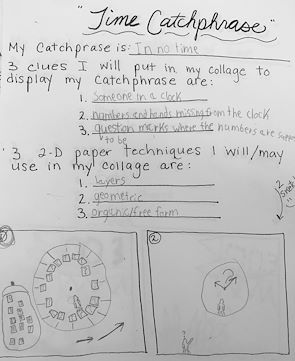 "Time Catchphrase"
My Catchprase is: In no time
3 clues I will put in my collage to
display my Catchphrase are:
1. Someone in a clock
2. numbers and hands missing from the clock
3. question marks where the numbers are
to be
3 2-D paper techniques I will/may
use in my collage are:
1. layers
2. geometric
3. organic/free form
2
?